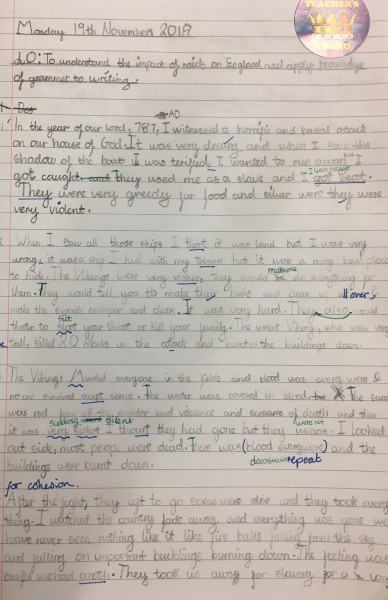 TEACHER'S
AWARD
Monday 19th November 2018
LO: To understand the impact of raids on England and apply knowledge
of grammar to writing.
AD
In the year of our lord, 787, I witnessed a horrific and brutal attack
on our house of God. It was very and when I saw the
shadow of the boat I was terified. I wanted to run away but I
got caught. They used me as a slave and I got beat.
They were very greedy for food and silver were they were
very violent.
When I saw all those ships I thort it was land but I was very
wrong, it was a ship. I hid with my but it was a very bad place
to hide. The Vikings were very they would make me do everything for
them. They would tell you to make their beds and clean us all over,
make the events and clean. It was very hard. They also would
slit
threten to your throat or kill your family. The violent Viking, who was very
tall, killed monks in the atack and burnt the buildings down.
The Vikings Murdd everyone in the and blood was every were &
no one survived acept some. The water was covered in blood. The sand
was red from all the murder and violence and screams of death and then
suddenly silent
it was very silent I thourt they had gone but they weant. I looked
out side, most people were dead. There was (blood everywere) and the
repeat
buildings were burnt down.
for cohesion.
After the fight, they left to go some were else and they took every
thing. I watched the country fade away and everything was gone we
have never seen nothing like it like fire balls falling from the sky
and falling on important buildings burning down. The feeling was
They took us away for slavery for a very